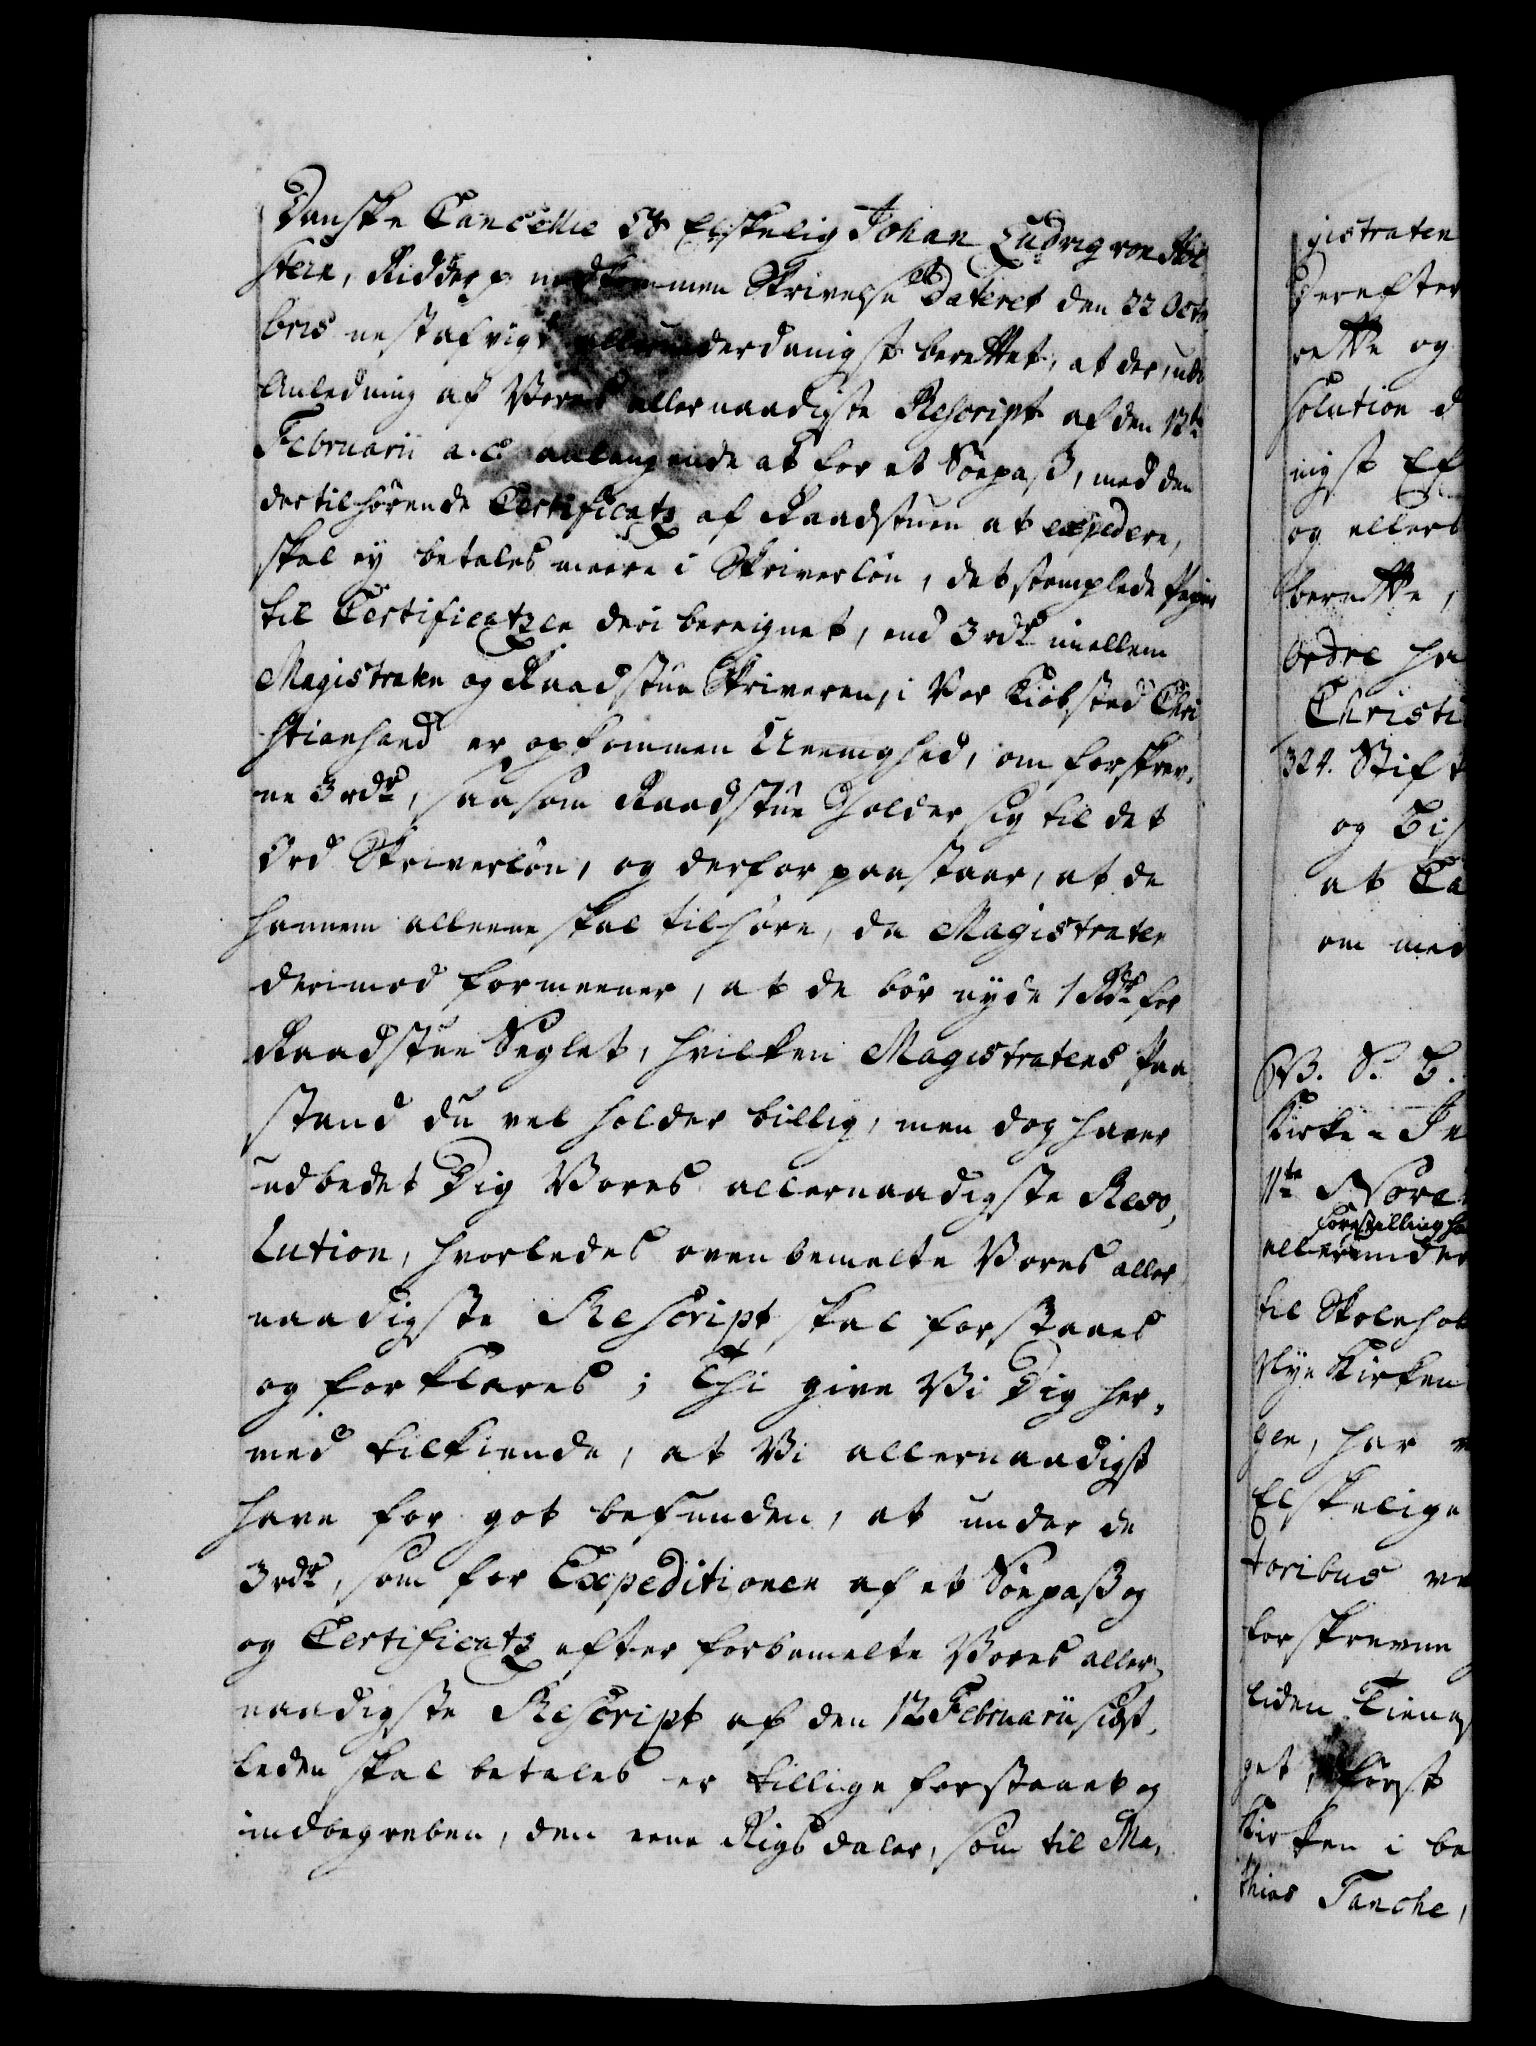 Danske Cancellie Os Elskelig Johan Ludvig von Hol
stein, Ridder p: indkommen Skrivelse Dateret den 22 Octo
bris nestafvigt allerunderdanigst berettet, at der, udi
Anledning af Vores allernaadigste Rescript af den 12te
Februarii a. c. anlangende at for et Söepass, med den
dertilhörende Certificatz af Raadstuen at expedere,
skal ey betales meere i Skriverlön, det stemplede Papiir
til Certificatzen deri bereignet, end 3 rdr imellem
Magistraten og Raadstue Skriveren, i Vor Kiöbsted Chri
stiansand er opkommen Ueenighed, om forskrev,
ne 3 rdr, saasom Raadstue holder sig til det
Ord Skriverlön, og derfor paastaar, at de
hannem alleene skal tilhöre, da Magistraten
derimod formeener, at de bör nyde 1 Rdr for
Raadstue Seglet, hvilken Magistratens Paa
stand du vel holder billig, men dog haver
udbedet Dig Vores allernaadigste Reso,
lution, hvorledes ovenbemelte Vores aller
naadigste Rescript skal forstaaes
og forklares; Thi give Vi Dig her,
med tilkiende, at Vi allernaadigst
have for got befunden, at under de
3 rdr, som for Expeditionen af et Söepass og
og Certificatz efter forbemelte Vores aller,
naadigste Rescript af den 12 Februarii sidst,
leden skal betales er tillige forstaaet og
indbegreben, den eene Rigsdaler, som til Ma,
gistraten
Derefter
rette og
solution d
nigst Ef
og allerb
berette,
Ordre ha
Christi
324. Stift
og Bis
at Ca
om med
V. S. B.
Kirke- In
11te Nove
Forestilling ha
allerunder
til Skolehol
Nye Kirken
gen, har v
Elskelige
toribus ve
forskrevne
liden Tienes
get, först
Kirken i be
thias Tanche,